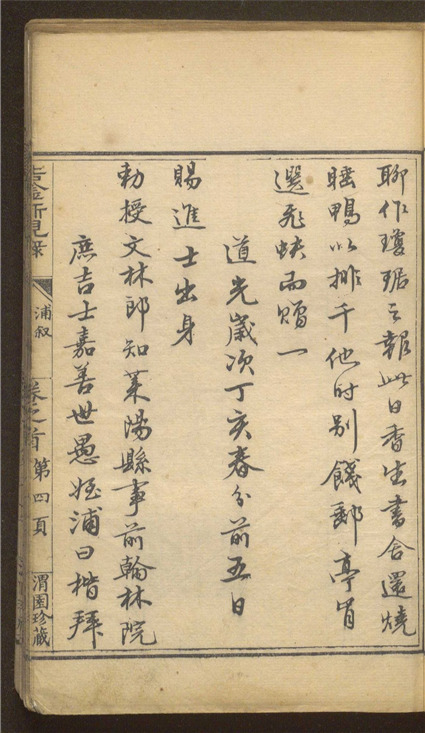 聊作瓊琚之報此日香生書舍還燒
睡鴨以排千他时别餞郵亭肯
選飛蚨而贈一
道光歲次丁亥春分前五日
賜進士出身
勅授文林郎知萊陽縣事前翰林院
庶吉士嘉善世愚姪浦曰楷拜
吉金所見錄
浦叙
卷之首
第四頁
渭園珍藏